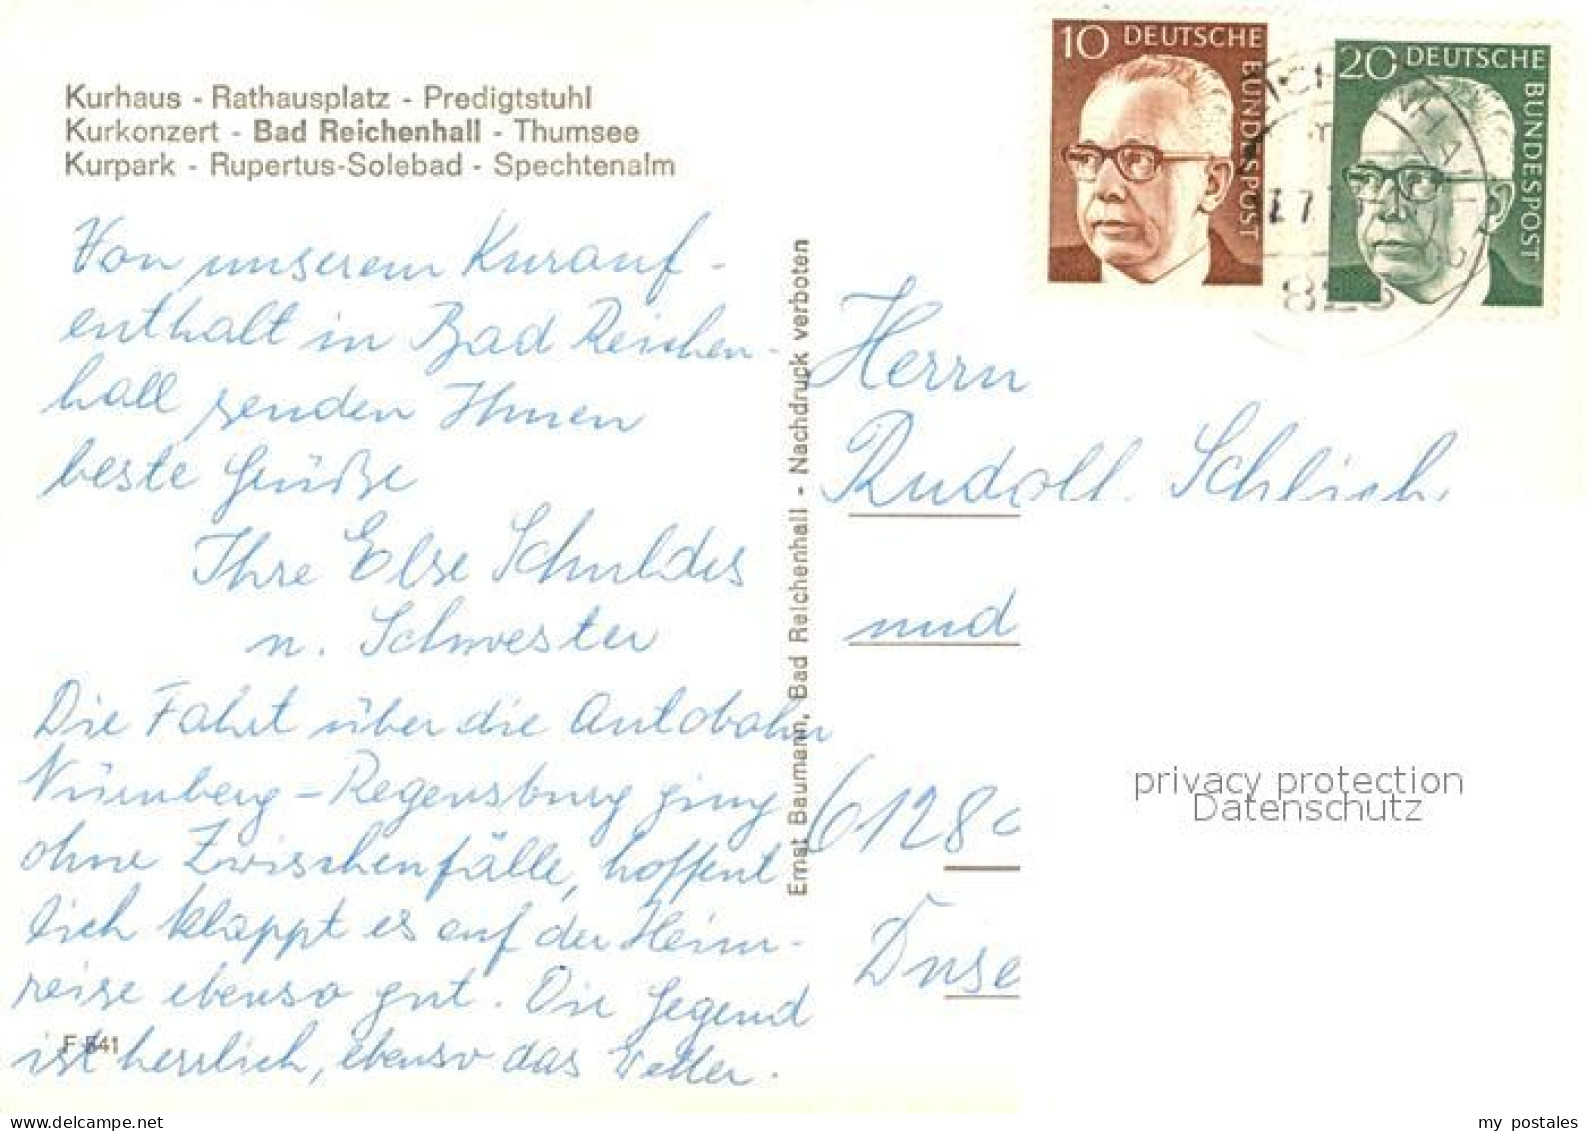 Kurhaus - Rathausplatz - Predigtstuhl
Kurkonzert - Bad Reichenhall - Thumsee
Kurpark - Rupertus-Solebad - Spechtenalm
Von unserem Kurauf-
enthalt in Bad Reichen-
hall senden Ihnen
beste Grüße
Ihre Else Schuldes
u. Schwester
Die Fahrt über die Autobahn
Nürnberg - Regensburg ging
ohne Zwischenfälle, hoffent
lich klappt es auf der Heim-
reise ebenso gut. Die Gegend
ist herrlich, ebenso das Wetter.
F 541
Ernst Baumann, Bad Reichenhall - Nachdruck verboten
10 DEUTSCHE BUNDESPOST
20 DEUTSCHE BUNDESPOST
Herrn
Rudolf Schlich
und
6128
Duse
privacy protection
Datenschutz
my postales